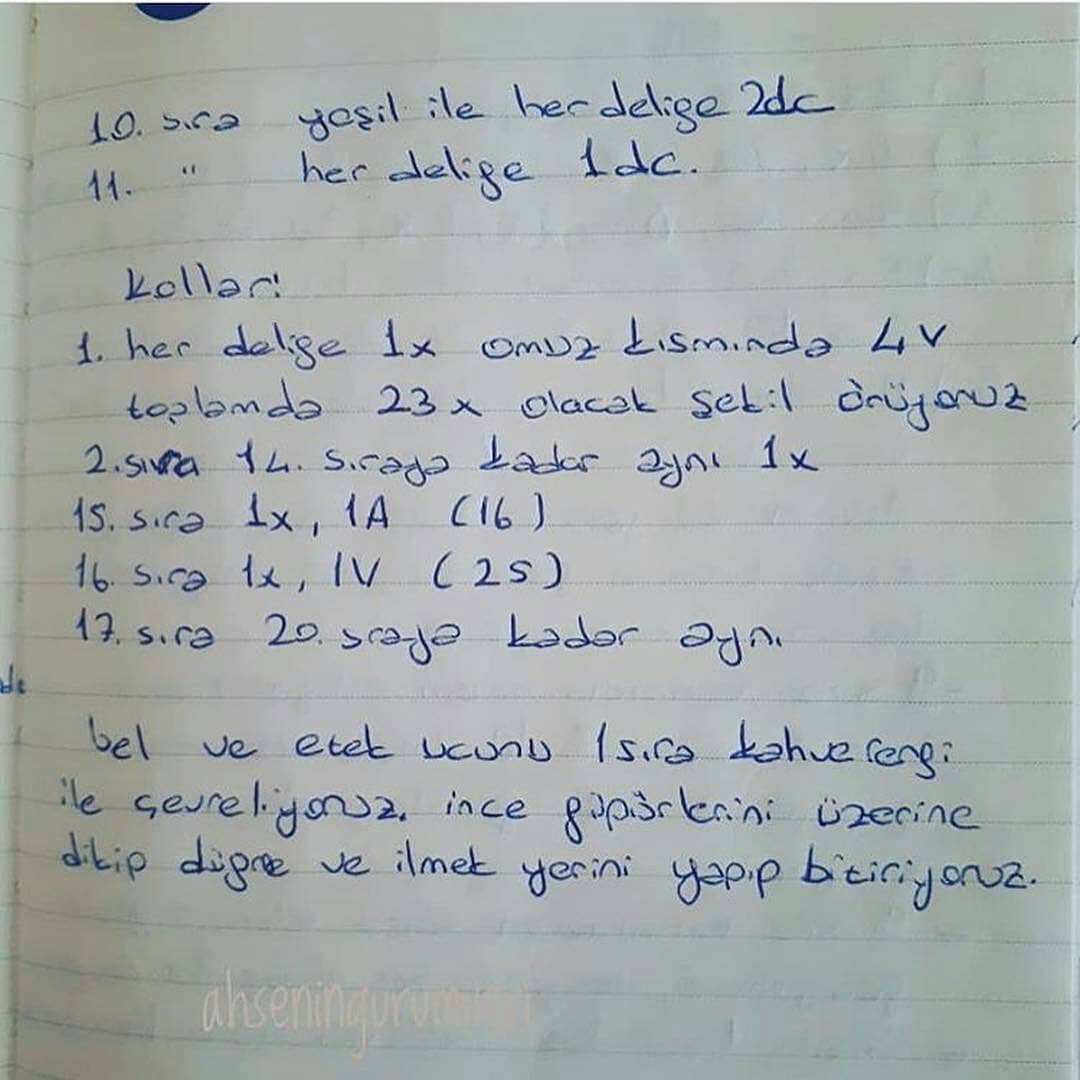 10. sıra yeşil ile her deliğe 2dc
11. " her deliğe 1dc.
Kollar:
1. her deliğe 1x omuz kısmında 4V
toplamda 23x olacak şekil örüyoruz
2.sıra 14. sıraya kadar aynı 1x
15. sıra 1x, 1A (16)
16. sıra 1x, 1V (25)
17. sıra 20. sraya kadar aynı
de
bel ve etek ucunu 1sıra kahverengi
ile çevreliyoruz. ince güpürlerini üzerine
dikip düğme ve ilmek yerini yapıp bitiriyoruz.